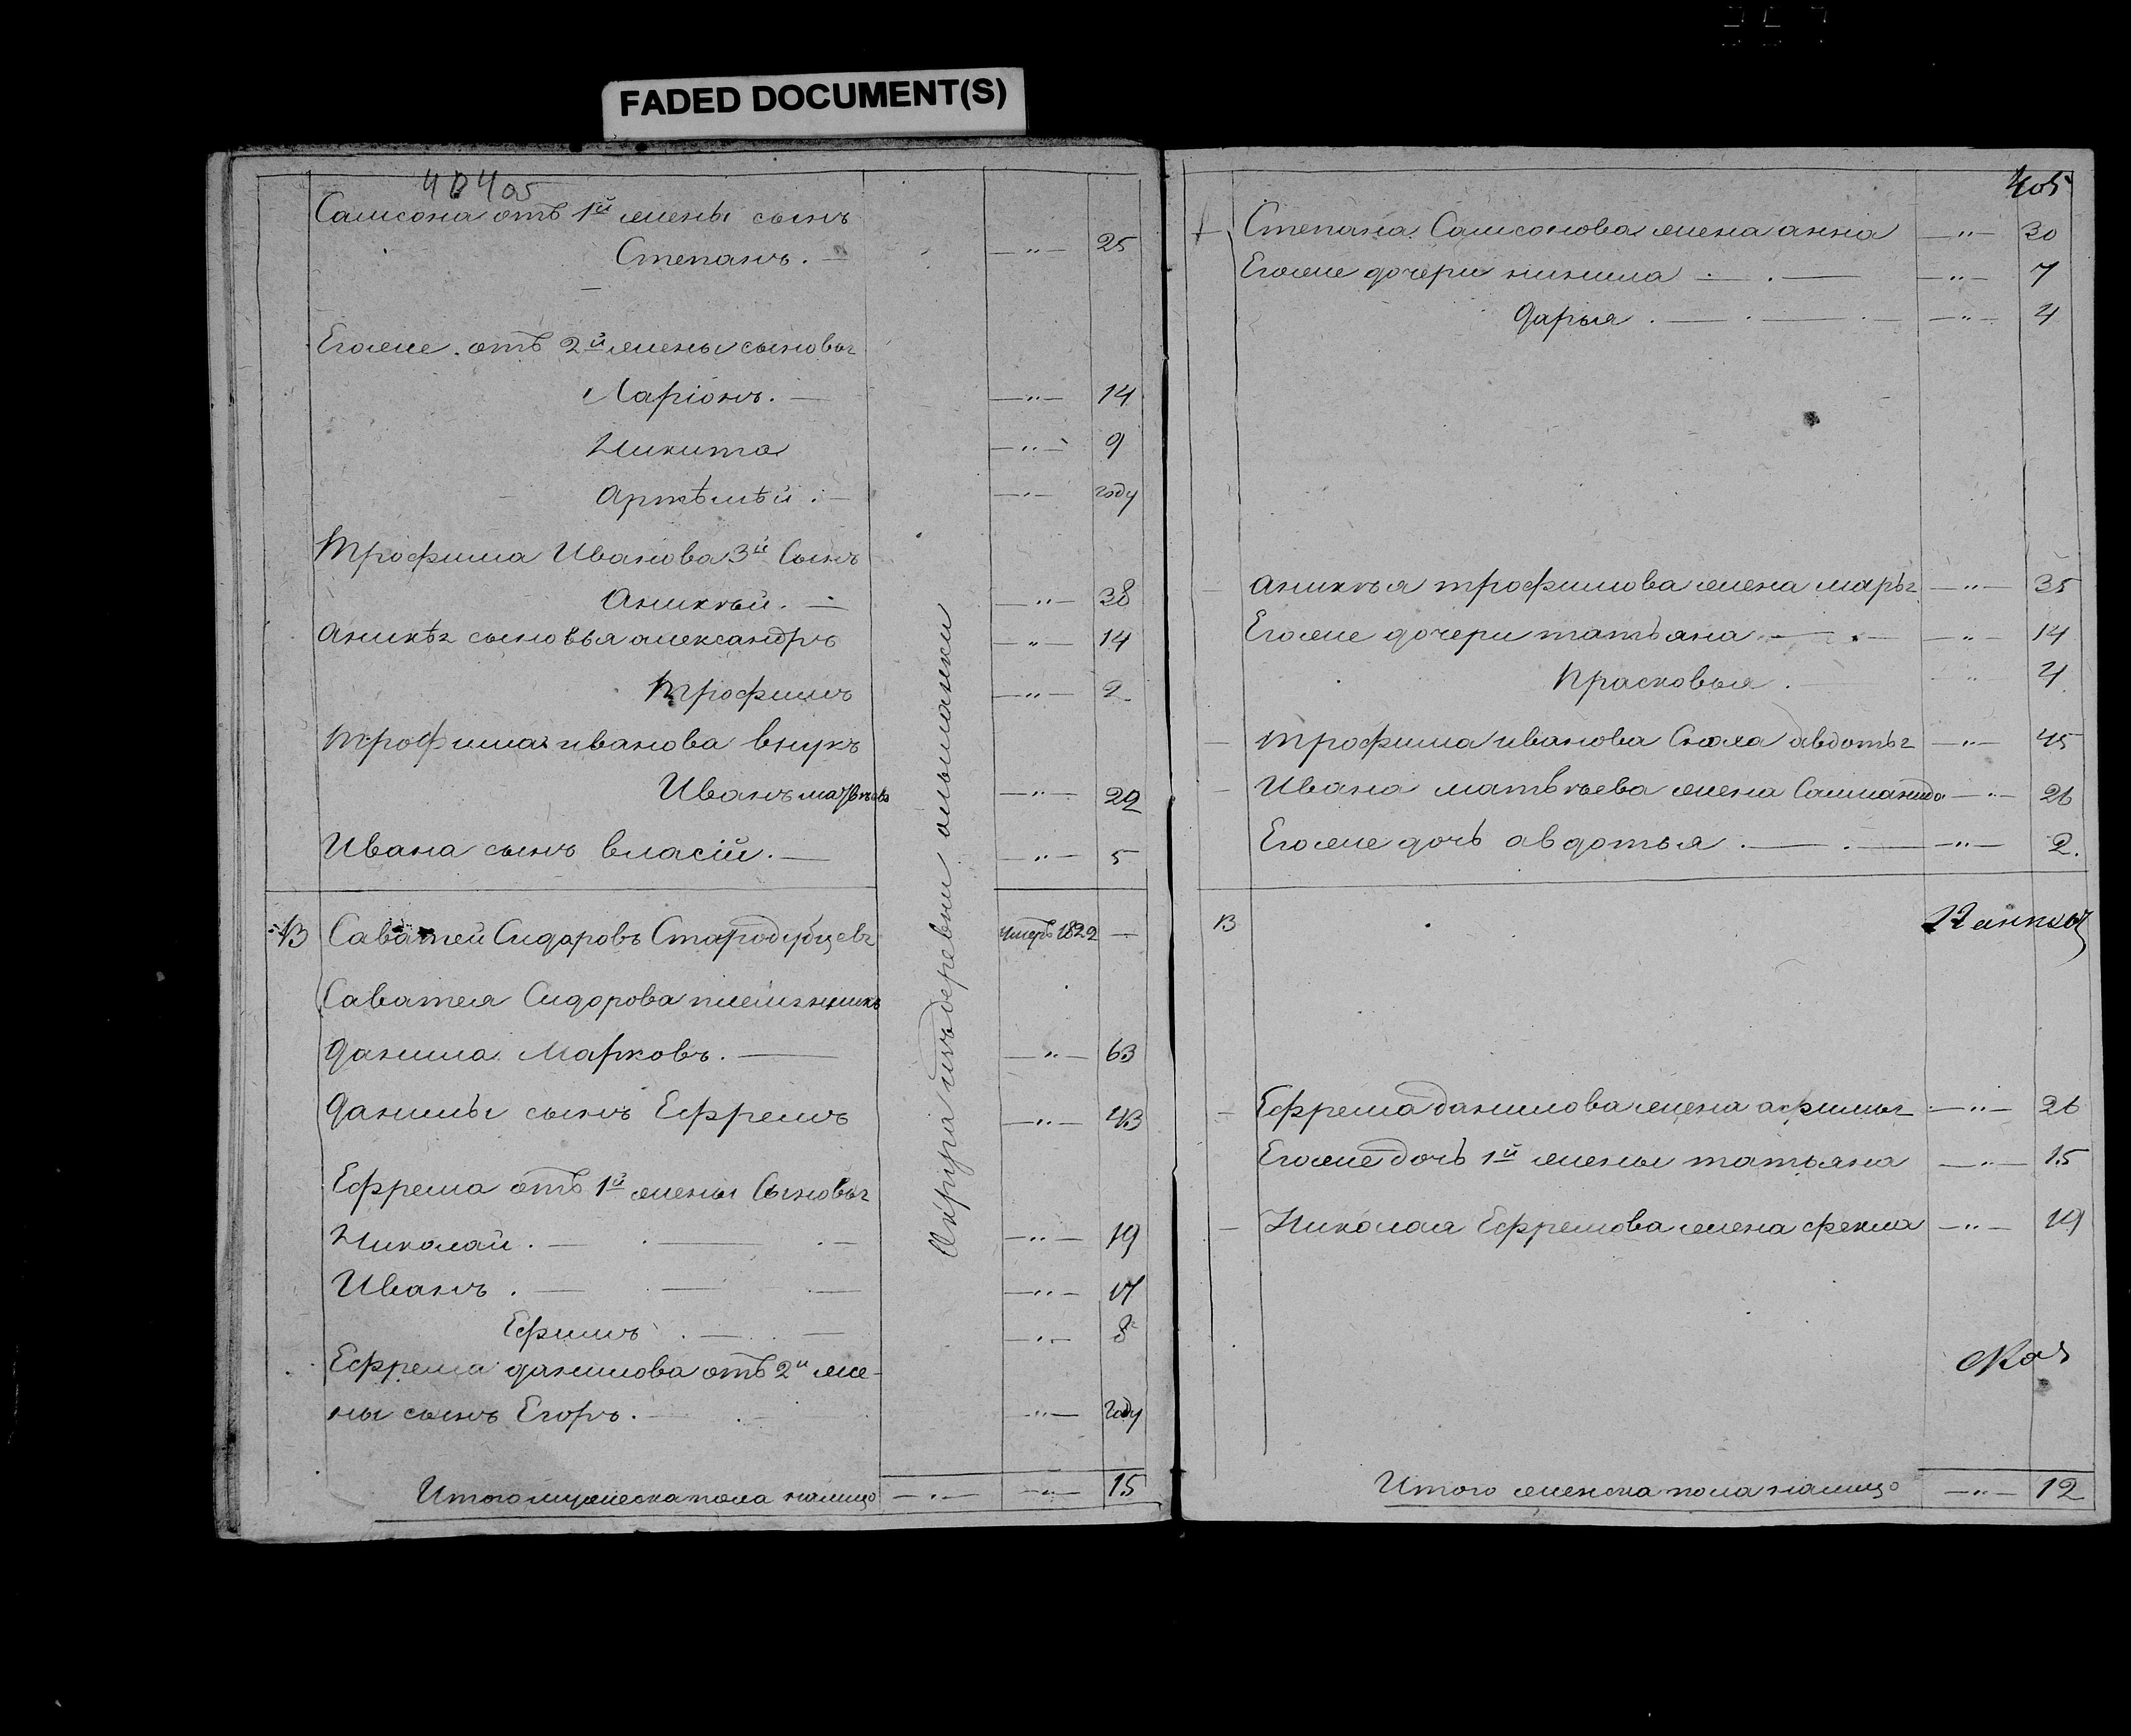 FADED DOCUMENT(S)
Самсона отъ 1й жены сынъ
Степанъ. — „ — 25
Егоже отъ 2й жены сыновья
Ларіонъ. — „ — 14
Никита — „ — 9
Артѣмѣй. — „ — году
Трофима Иванова 3й Сынъ
Аникѣй. — „ — 38
Аникѣя сыновья александръ — „ — 14
Трофимъ — „ — 2
Трофима иванова внукъ
Иванъ матвѣевъ — „ — 29
Ивана сынъ власій. — „ — 5
13 Саватей Сидоровъ Стародубцевъ умеръ 1822 —
Саватея Сидорова племянникъ
данила Марковъ. — „ — 63
данилы сынъ Ефремъ — „ — 43
Ефрема отъ 1й жены Сыновья
Николай. — „ — 19
Иванъ. — „ — 17
Ефимъ. — „ — 8
Ефрема данилова отъ 2й же-
ны сынъ Егоръ. — „ — году
Итого мужеска пола налицо — „ — 15
деревни ольшанки
405
Степана Самсонова жена анна — „ — 30
Егоже дочери ненила — „ — 7
дарья — „ — 4
аникѣя трофимова жена марья — „ — 35
Егоже дочери татьяна — „ — 14
Прасковья. „ 4
Трофима иванова Сноха авдотья — „ — 45
Ивана матвѣева жена Саломанида — „ — 26
Егоже дочь авдотья. — „ — 2.
13
Ефрема данилова жена афимья — „ — 26
Егоже дочь 1й жены татьяна — „ — 15
Николая Ефремова жена фекла — „ — 19
Итого женска пола налицо — „ — 12